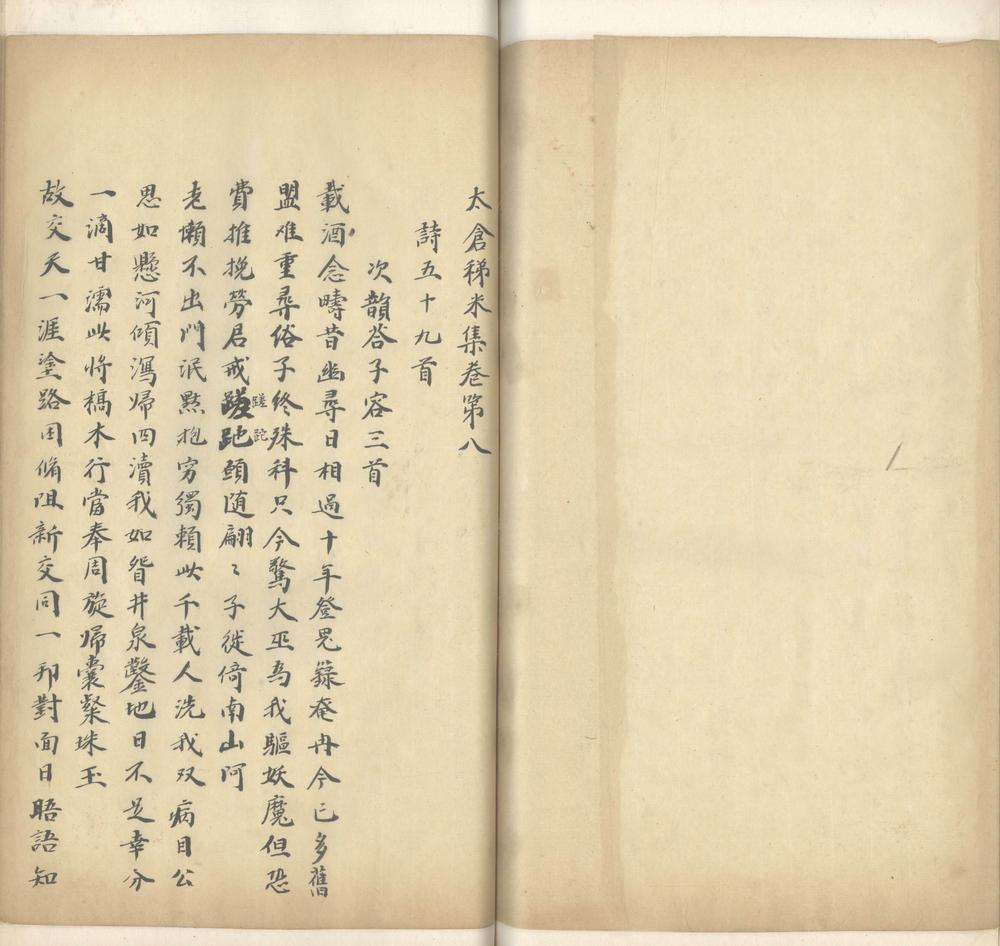 太倉稊米集卷第八
詩五十九首
次韻答子容三首
載酒念疇昔幽尋日相過十年登鬼籙奄冉今已多舊
盟难重尋俗子終殊科只今驚大巫為我驅妖魔但恐
費推挽勞君戒蹉跎蹉跎頭随翩〻子徙倚南山阿
老懶不出門泯黙抱穷獨賴此千載人洗我双病目公
思如懸河傾瀉歸四瀆我如眢井泉鑿地日不足幸分
一滴甘濡此将槁木行當奉周旋歸囊粲珠玉
故交天一涯塗路困脩阻新交同一邦對面日晤語知